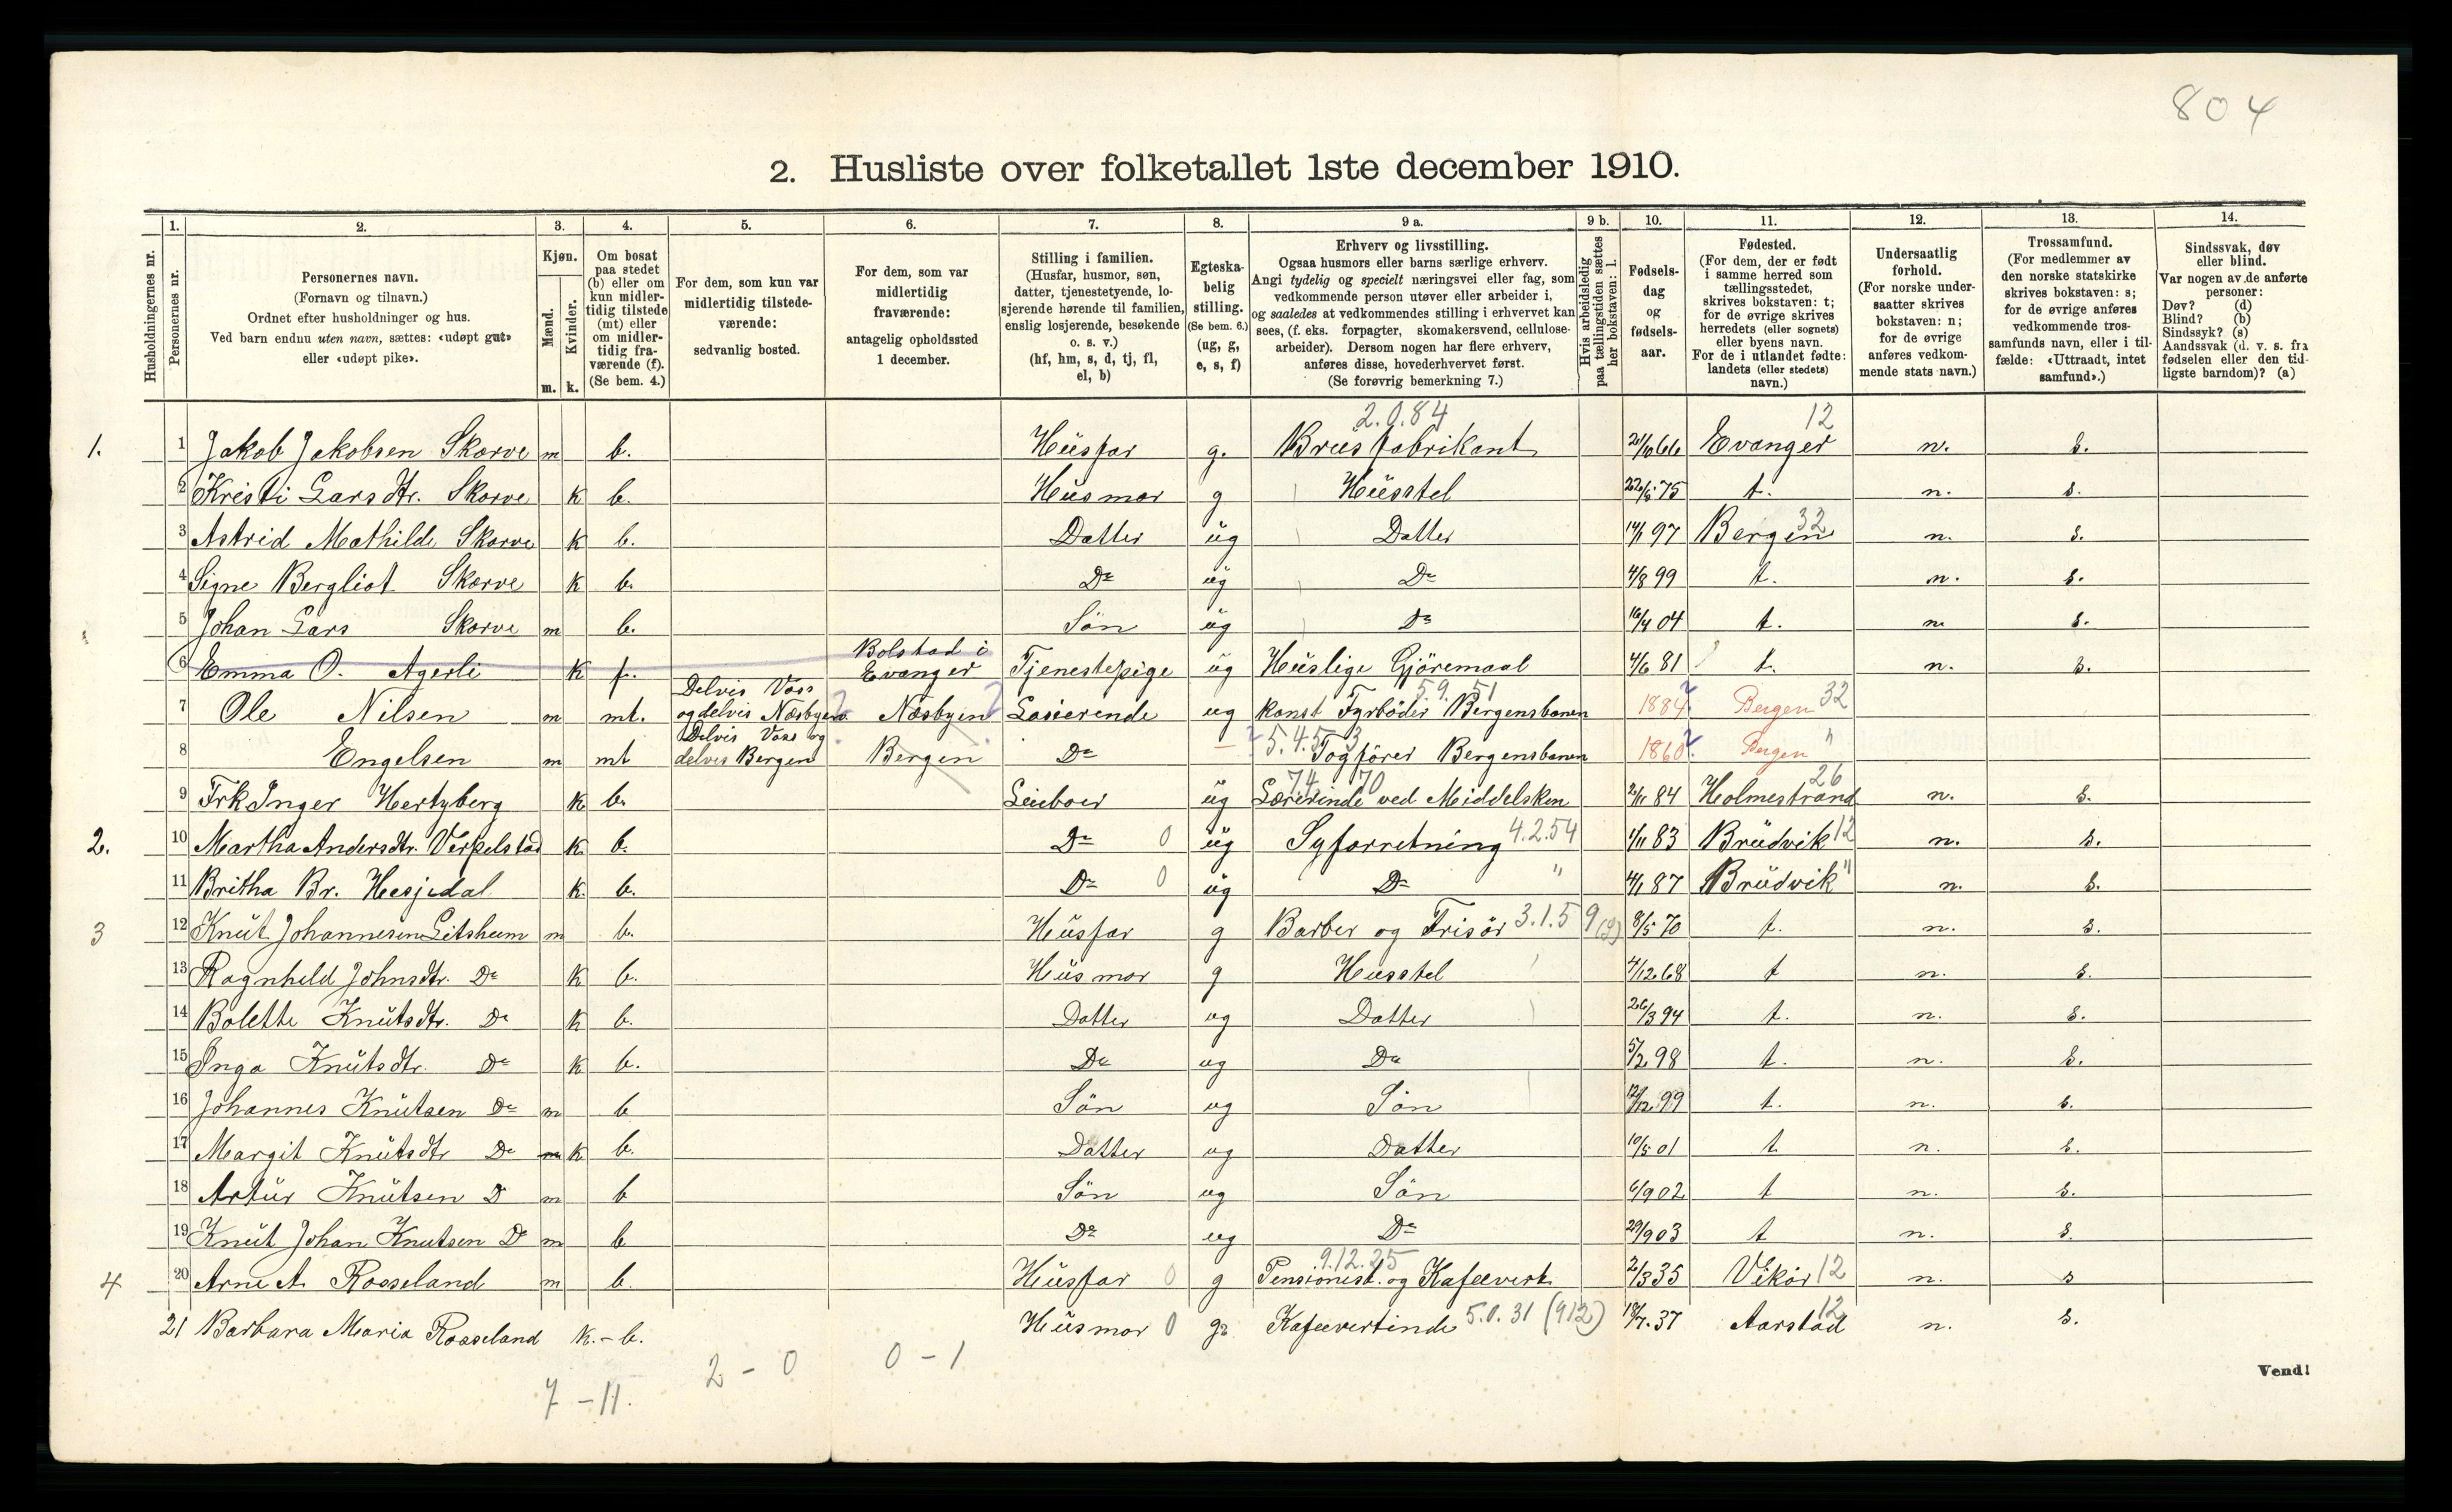 804
2. Husliste over folketallet 1ste december 1910.
Husholdningernes nr.
1. Personernes nr.
2. Personernes navn. (Fornavn og tilnavn.) Ordnet efter husholdninger og hus. Ved barn endnu uten navn, sættes: «udøpt gut» eller «udøpt pike».
3. Kjøn. Mænd. m. Kvinder. k.
4. Om bosat paa stedet (b) eller om kun midlertidig tilstede (mt) eller om midlertidig fraværende (f). (Se bem. 4.)
5. For dem, som kun var midlertidig tilstedeværende: sedvanlig bosted.
6. For dem, som var midlertidig fraværende: antagelig opholdssted 1 december.
7. Stilling i familien. (Husfar, husmor, søn, datter, tjenestetyende, losjerende hørende til familien, enslig losjerende, besøkende o. s. v.) (hf, hm, s, d, tj, fl, el, b)
8. Egteskabelig stilling. (Se bem. 6.) (ug, g, e, s, f)
9 a. Erhverv og livsstilling. Ogsaa husmors eller barns særlige erhverv. Angi tydelig og specielt næringsvei eller fag, som vedkommende person utøver eller arbeider i, og saaledes at vedkommendes stilling i erhvervet kan sees, (f. eks. forpagter, skomakersvend, cellulosearbeider). Dersom nogen har flere erhverv, anføres disse, hovederhvervet først. (Se forøvrig bemerkning 7.)
9 b. Hvis arbeidsledig paa tællingstiden sættes her bokstaven: l.
10. Fødselsdag og fødselsaar.
11. Fødested. (For dem, der er født i samme herred som tællingsstedet, skrives bokstaven: t; for de øvrige skrives herredets (eller sognets) eller byens navn. For de i utlandet fødte: landets (eller stedets) navn.)
12. Undersaatlig forhold. (For norske undersaatter skrives bokstaven: n; for de øvrige anføres vedkommende stats navn.)
13. Trossamfund. (For medlemmer av den norske statskirke skrives bokstaven: s; for de øvrige anføres vedkommende trossamfunds navn, eller i tilfælde: «Uttraadt, intet samfund».)
14. Sindssvak, døv eller blind. Var nogen av de anførte personer: Døv? (d) Blind? (b) Sindssyk? (s) Aandssvak (d. v. s. fra fødselen eller den tidligste barndom)? (a)
2.0.84 12
1. 1 Jakob Jakobsen Skorve m b. Husfar g. Brusfabrikant 20/10 66 Evanger n. s.
2 Kristi Larsdtr. Skorve k b. Husmor g Husstel 22/5 75 t. n. s.
3 Astrid Mathilde Skorve k b. Datter ug Datter 14/1 97 Bergen 32 n. s.
4 Signe Bergliot Skorve k b. Do ug Do 4/8 99 t. n. s.
5 Johan Lars Skorve m b. Søn ug Do 16/4 04 t. n. s.
6 Emma O. Agerli k f. Bolstad i Evanger Tjenestepige ug Huslige Gjøremaal 4/6 81 t. n. s.
7 Ole Nilsen m mt. Delvis Voss og delvis Næsbyen ? Næsbyen ? Losierende ug konst Fyrbøder Bergensbanen 5.9.51 1884 ? Bergen 32
8 Engelsen m mt Delvis Voss og delvis Bergen Bergen Do — ? 5.4.5 3 Togfører Bergensbanen 1860 ? Bergen "
9 Frk Inger Hertzberg k b. Leieboer ug 74. 70 Lærerinde ved Middelskon 2/11 84 Holmestrand 26 n. s.
2. 10 Martha Andersdtr. Verpelstad k b. Do 0 ug Syforretning 4.2.54 1/11 83 Brudvik 12 n. s.
11 Britha Br. Hesjedal k. b. Do 0 ug Do " 4/1 87 Brudvik " n. s.
3 12 Knut Johannesen Gitsheim m b. Husfar g Barber og Frisør 3.1.59 (9) 8/5 70 t. n. s.
13 Ragnhild Johnsdtr. Do k b. Husmor g Husstel 4/12 68 t n. s.
14 Bolette Knutsdtr. Do k b. Datter ug Datter 26/3 94 t. n. s.
15 Inga Knutsdtr. Do k b. Do ug Do 5/2 98 t. n. s.
16 Johannes Knutsen Do m b Søn ug Søn 12/12 99 t. n. s.
17 Margit Knutsdtr Do m k b. Datter ug Datter 10/5 01 t n. s.
18 Artur Knutsen D m b Søn ug Søn 6/9 02 t n. s.
19 Knut Johan Knutsen D m b Do ug Do 29/9 03 t n. s.
4 20 Arne A. Rosseland m b. Husfar 0 g 9.12.25 Pensionist. og Kafeevert 2/3 35 Vikør 12 n. s
21 Barbara Maria Rosseland k. – b. Husmor 0 g. Kafeevertinde 5.0.31 (912) 18/7. 37 Aarstad 12 n. s.
7 – 11. 2 – 0 0 – 1
Vend!